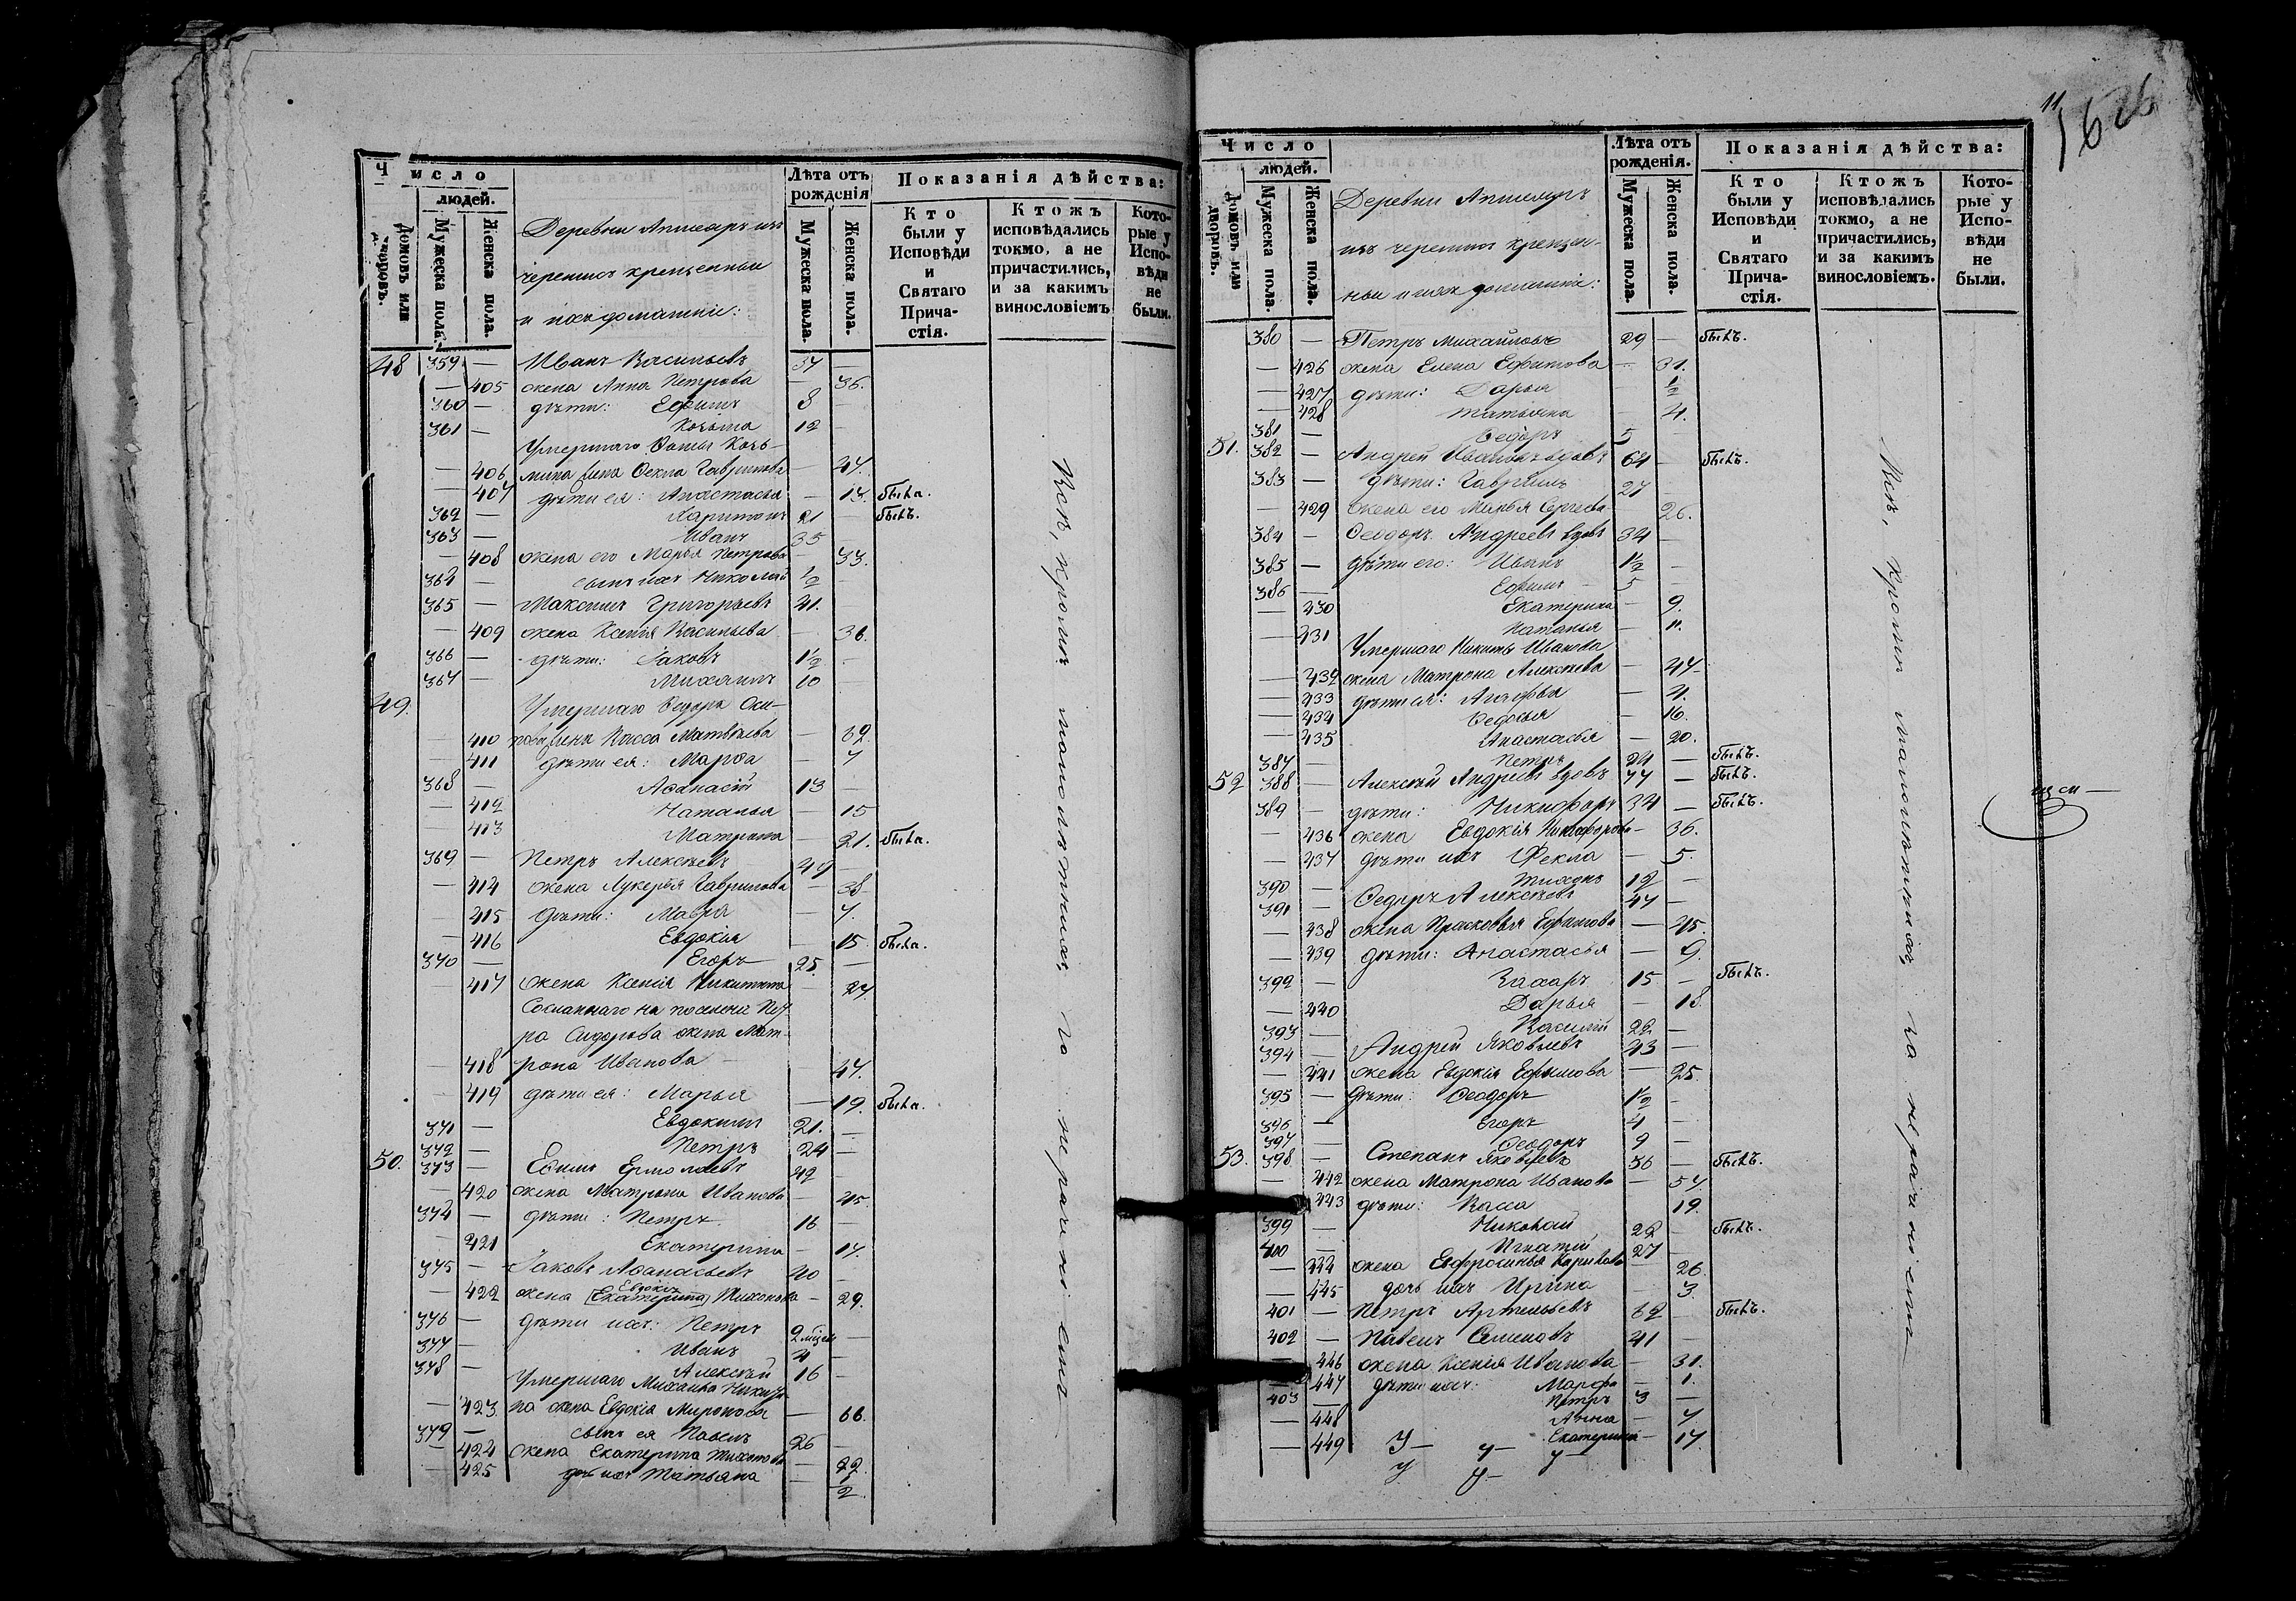 Число
людей.
Домовъ или дворовъ.
Мужеска пола.
Женска пола.
Деревни Апшеаръ изъ
черемисъ крещенныи
и ихъ домашніи:
Лѣта отъ
рожденія
Мужеска пола.
Женска пола.
Показанія дѣйства:
Кто
были у
Исповѣди
и
Святаго
Прича-
стія.
Ктожъ
исповѣдались
токмо, а не
причастились,
и за какимъ
винословіемъ
Кото-
рые у
Испо-
вѣди
не
были.
48 359 — Иванъ Васильевъ 37 —
— 405 жена Анна Петрова — 36.
360 — дѣти: Ефимъ 8 —
361 — Козьма 12 —
Умершаго Фомы Козь-
— 406 мина жена Фекла Гаврилова — 47.
— 407 дѣти ея: Анастасья — 13. была.
362 — Харитонъ 21 — былъ.
363 — Иванъ 35
— 408 жена его Марья Петрова — 33.
364 — сынъ ихъ Николай 1/2
365 — Максимъ Григорьевъ 41.
— 409 жена Ксенія Васильева — 36.
366 — дѣти: Іаковъ 1 1/2 —
367 — Михаилъ 10
49. Умершаго Федора Оси-
— 410 пова жена Васса Матвѣева — 39
— 411 дѣти ея: Марфа — 7
368 — Афанасій 13 —
— 412 Наталья — 15
— 413 Матрона — 21. была.
369 — Петръ Алексѣевъ 49 —
— 414 жена Лукерья Гаврилова — 38
— 415 дѣти: Мавра — 7.
— 416 Евдокія — 15. была.
370 — Егоръ 25. —
— 417 жена Ксенія Никитина — 27
Сосланнаго на поселеніе Пет-
ра Сидорова жена Мат-
— 418 рона Иванова — 47.
— 419 дѣти ея: Марья — 19. была.
371 — Евдокимъ 21. —
372 — Петръ 24 —
50. 373 — Ефимъ Ермолаевъ 42 —
— 420 жена Матрона Иванова — 45.
374 — дѣти: Петръ 16 —
— 421 Екатерина — 17.
375 — Іаковъ Афанасьевъ 40 —
Евдокія
— 422 жена [Екатерина] Тихонова — 29.
376 — дѣти ихъ: Петръ 2 мѣсяц —
377 — Иванъ 4 —
378 — Алексѣй 16 —
Умершаго Михаила Никити-
— 423. на жена Евдокія Миронова — 66.
379 — сынъ ея Павелъ 26 —
— 424 жена Екатерина Тихонова — 22.
— 425 дочь ихъ Татьяна — 2
Всѣ, кромѣ малолѣтнихъ, по нерачению
11
626
Число
людей.
Домовъ или дворовъ.
Мужеска пола.
Женска пола.
Деревни Апшеаръ
изъ черемисъ крещен-
ныи и ихъ домашніи:
Лѣта отъ
рожденія.
Мужеска пола.
Женска пола.
Показанія дѣйства:
Кто
были у
Исповѣди
и
Святаго
Прича-
стія.
Ктожъ
исповѣдались
токмо, а не
причастились,
и за какимъ
винословіемъ.
Кото-
рые у
Испо-
вѣди
не
были.
380 — Петръ Михайловъ 29 — былъ.
— 426 жена Елена Ефимова — 31.
— 427 дѣти: Дарья — 1/2
— 428 Татьяна — 4.
381 — Ѳедоръ 5 —
51. 382 — Андрей Ивановъ вдовъ 64 — былъ.
383 — дѣти: Гавріилъ 27 —
— 429 жена его Марья Сергѣева — 26.
384 — Ѳеодоръ Андреевъ вдовъ 34 —
385 — дѣти его: Иванъ 1 1/2 —
386 — Ефимъ 5 —
— 430 Екатерина — 9.
— 431 Наталья — 11.
Умершаго Никиты Иванова
— 432 жена Матрона Алексѣева — 47
— 433 дѣти ея: Агафья — 11.
— 434 Ѳедосья — 16.
— 435 Анастасья — 20.
387 — Петръ 24 — былъ.
52 388 — Алексѣй Андреевъ вдовъ 77 — былъ.
389 — дѣти: Никифоръ 34 — былъ.
— 436 жена Евдокія Никифорова — 36.
— 437 дѣти ихъ Ѳекла — 5.
390 — Тихонъ 12 —
391 — Ѳедоръ Алексѣевъ 47 —
— 438 жена Прасковья Ефимова — 45.
— 439 дѣти: Анастасья — 9.
392 — Захаръ 15 — былъ.
— 440 Дарья — 18.
393 — Василій 22 —
394 — Андрей Яковлевъ 43 —
— 441 жена Евдокія Ефимова — 25.
395 — дѣти: Ѳеодоръ 1/2 —
396 — Егоръ 4 —
397 — Ѳеодоръ 9 —
53. 398 — Степанъ Яковлевъ 56 — былъ.
— 442 жена Матрона Иванова — 54
443 дѣти: Васса 19.
399 — Николай 22 — былъ.
400 — Игнатій 27 —
— 444 жена Евфросинья — 26.
— 445 дочь ихъ Ирина — 3.
401 — Петръ Артемьевъ 62 — былъ.
402 — Павелъ Семеновъ 41 —
446 жена Ксенія Иванова — 31.
— 447 дѣти ихъ: Марфа — 1.
403 — Петръ 3 —
— 448 Анна — 7.
— 449 Екатерина — 17
Всѣ, кромѣ малолѣтнихъ, по нерачению